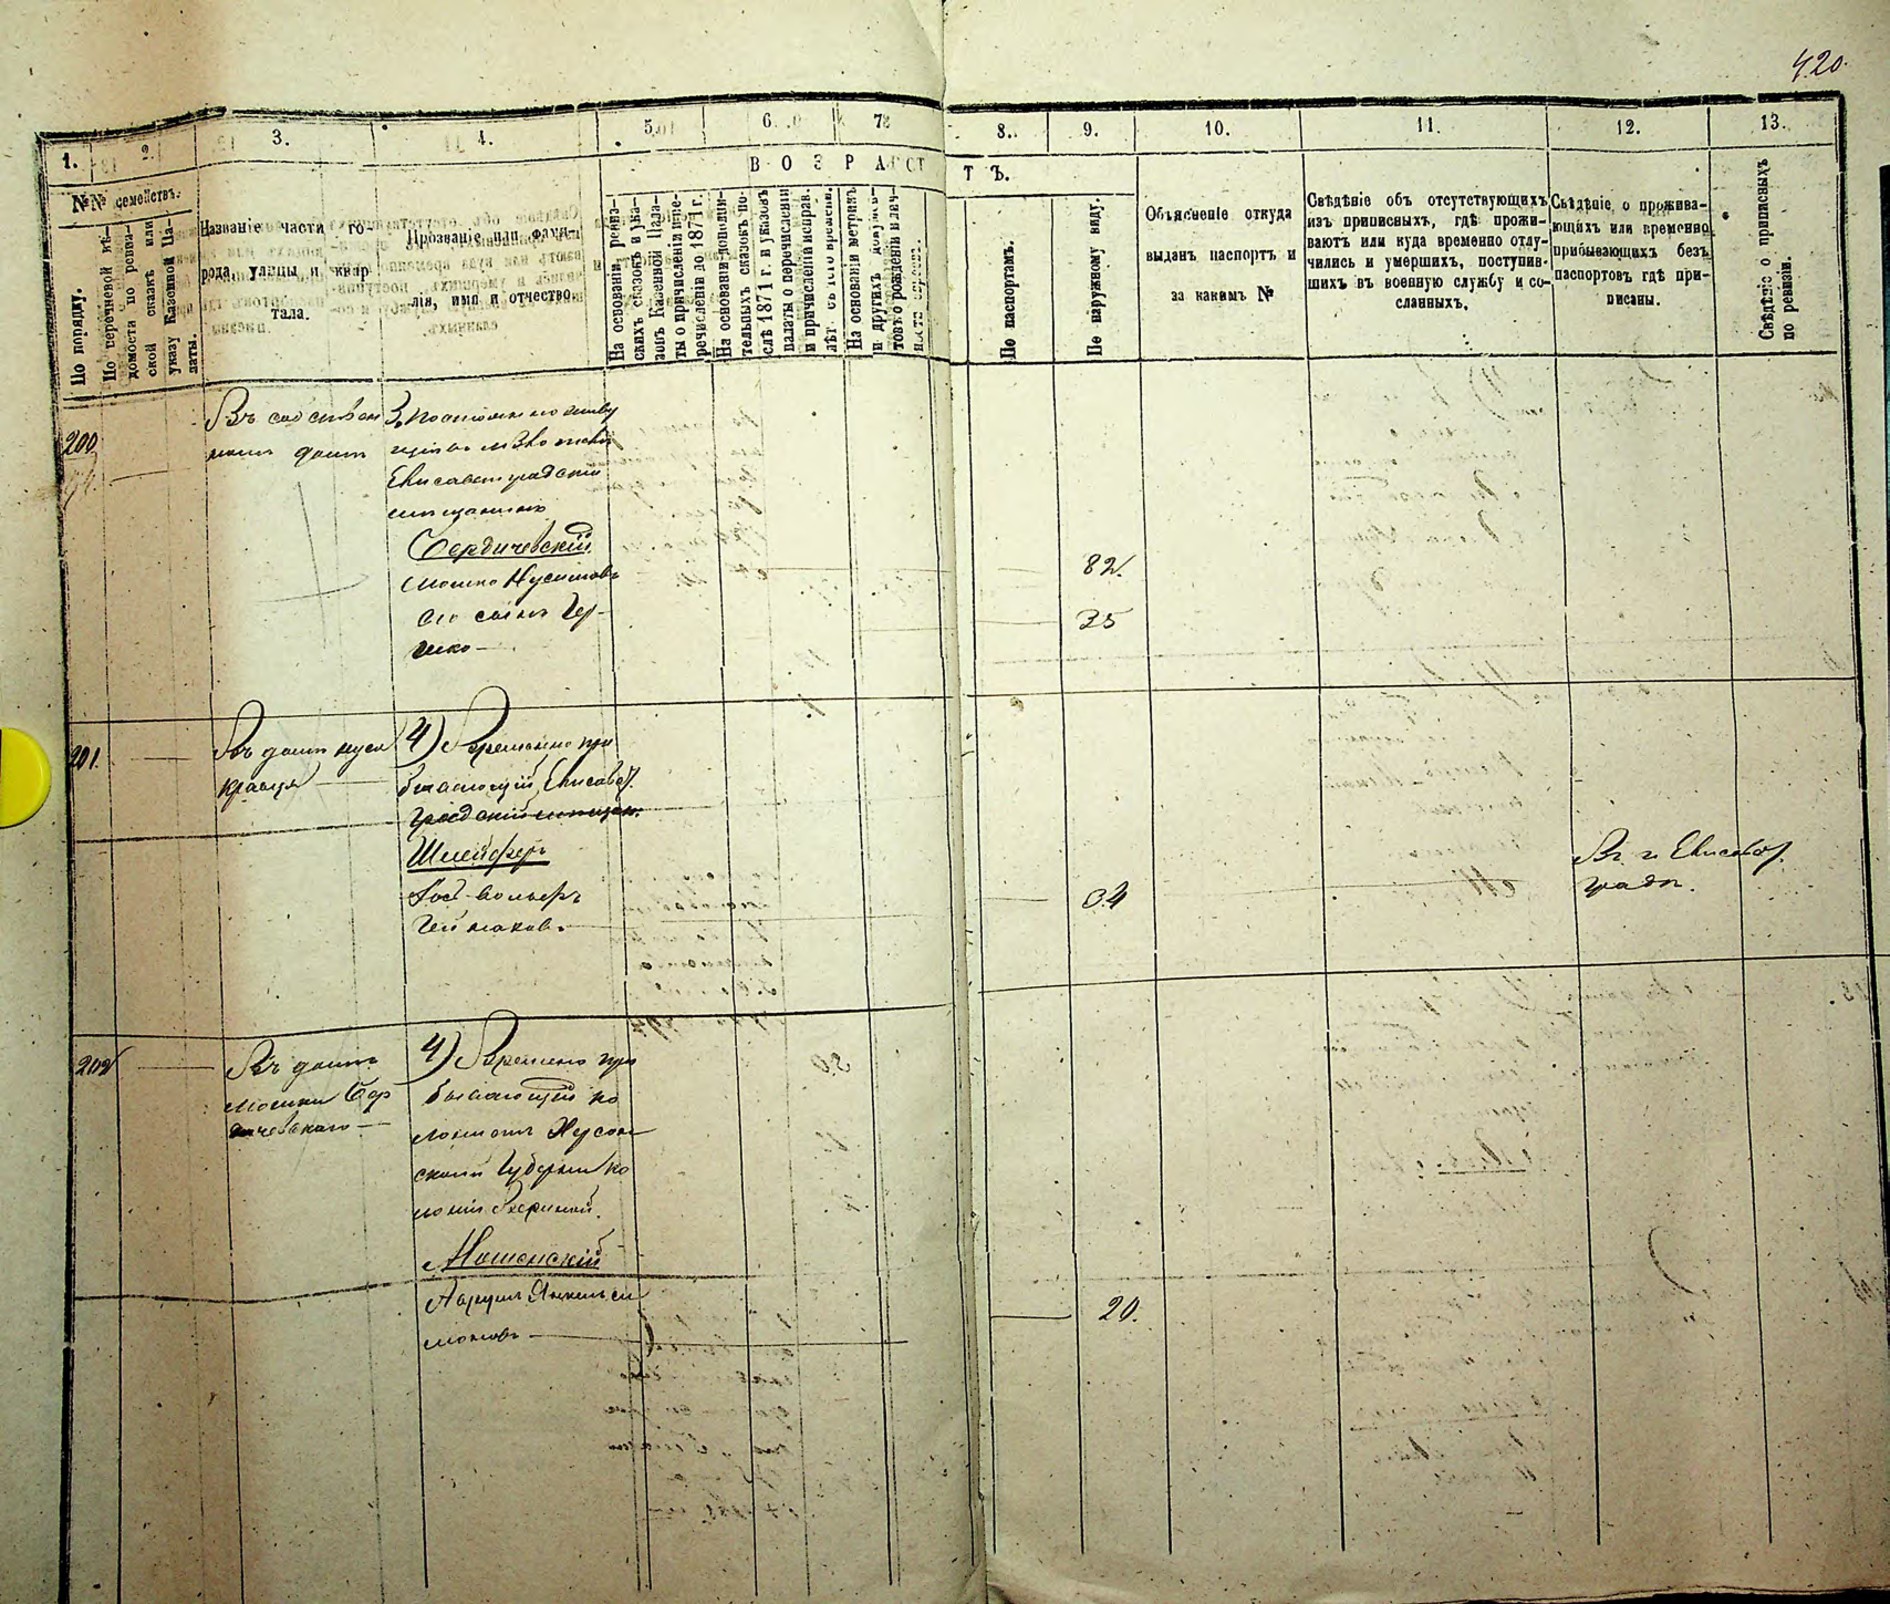 420.
1.
2.
3.
4.
5.
6.
7.
8.
9.
10.
11.
12.
13.
№№ семействъ.
ВОЗРАСТЪ.
По порядку.
По перечневой вѣ-
домости по ревиз-
ской сказкѣ или
указу Казенной Па-
латы.
Названіе части го-
рода, улицы и квар
тала.
Прозваніе или фами-
лія, имя и отчество
На основаніи ревиз-
скихъ сказокъ и ука-
зовъ Казенной Пала-
ты о причисленіи и пе-
речисленіи до 1871 г.
На основаніи дополни-
тельныхъ сказокъ по-
слѣ 1871 г. и указовъ
палаты о перечисленіи
и причисленіи исправ.
лѣт. съ того времени.
На основаніи метрикъ
и другихъ докумен-
товъ о рожденіи и лич-
По паспортамъ.
По наружному виду.
Объясненіе откуда
выданъ паспортъ и
за какимъ №
Свѣдѣніе объ отсутствующихъ
изъ приписныхъ, гдѣ прожи-
ваютъ или куда временно отлу-
чились и умершихъ, поступив-
шихъ въ военную службу и со-
сланныхъ.
Свѣдѣніе о прожива-
ющихъ или временно
прибывающихъ безъ
паспортовъ гдѣ при-
писаны.
Свѣдѣніе о приписныхъ
по ревизіи.
200
Въ собствен
номъ домѣ
3, Постоянно живу
щій въ м.
Елисаветградскій
мѣщанинъ
Бердичевскій
Мошко Нусимовъ
82.
его сынъ Гер-
шко —
35
201.
Въ домѣ
Кравця
4) Временно про
бывающій Елисавет.
градскій мѣщан.
Шлейферъ
34
Въ г. Елисавет.
градѣ.
202
Въ домѣ
Мошки Бер
дичевскаго —
4) Времено про
бывающій ко
лонистъ Херсон
ской Губерніи ко
лоніи
Машонскій
Янкель
20.